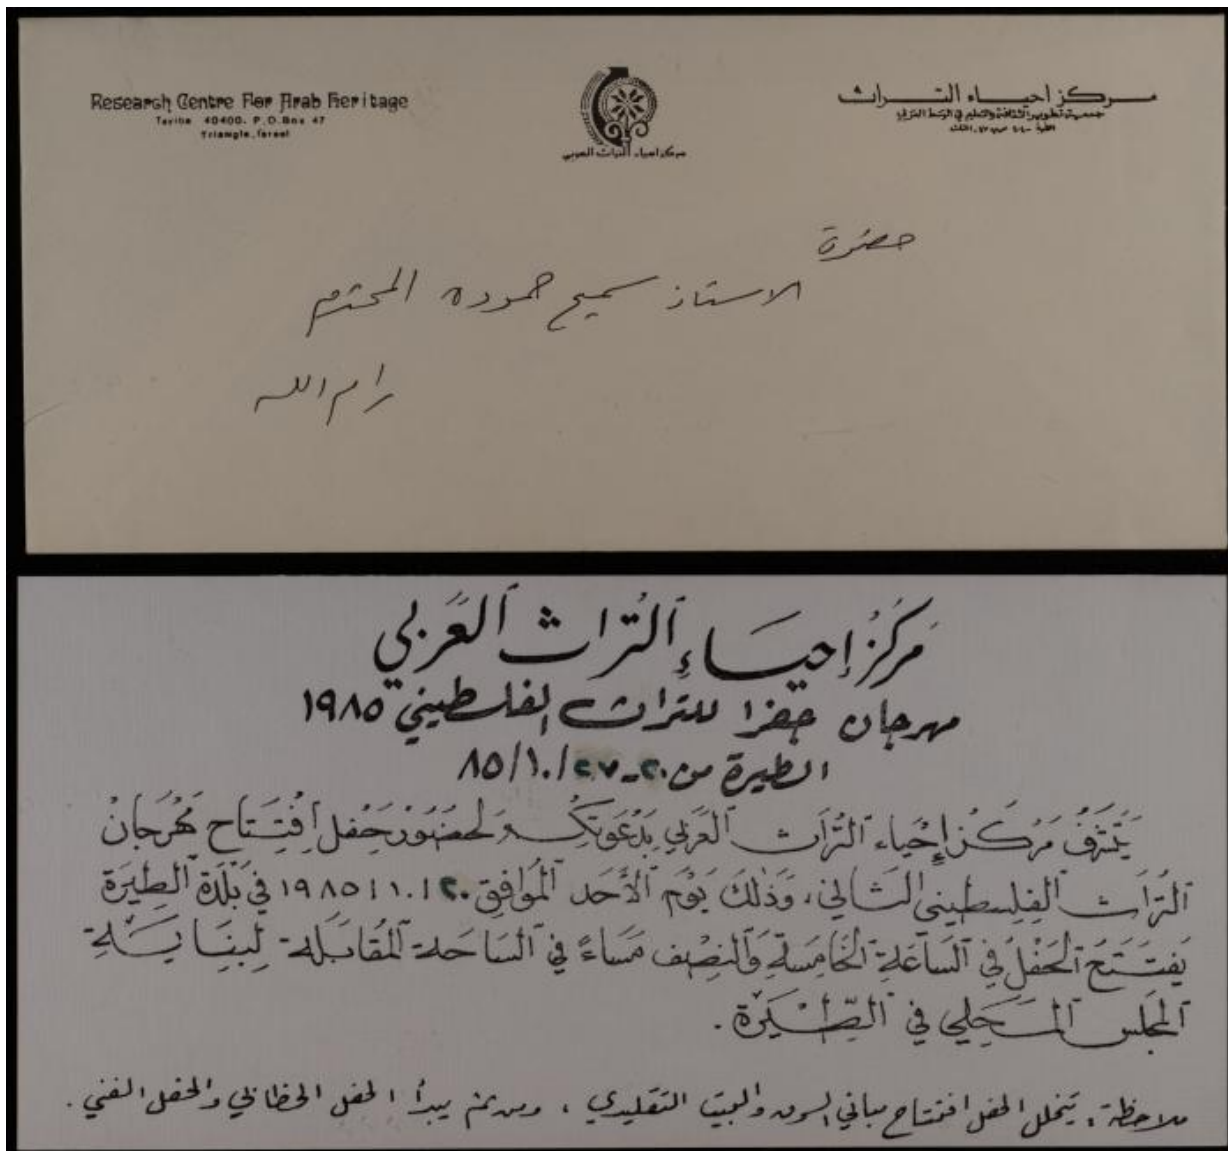 Research Centre For Arab Heritage
Taybe 40400. P.O.Box 47
Triangle, Israel
مركز احياء التراث العربي
مركز احياء التراث
جمعية تطوير الثقافة والتعليم في الوسط العربي
حضرة
الاستاذ سميح حموده المحترم
رام الله
مَركَزُ إحيَاءِ ٱلتُراث ٱلعَربي
مهرجان جفرا للتراث الفلسطيني ١٩٨٥
الطيرة من ٢٠-٢٧/١٠/٨٥
يَتَشرَّفُ مَركَز إِحْيَاء ٱلتُّرَاث ٱلعَرَبي بِدَعْوَتِكُم لحضُور حَفل ٱفتِتَاح مَهْرجَانْ
ٱلتُرَاث ٱلفِلِسطِيني ٱلثَاني، وَذٰلكَ يَوْم ٱلأَحَد ٱلمُوَافِق ١٩٨٥/١٠/٢٠ في بَلْدَة ٱلطِيرَة
يَفتَتَح ٱلحَفلُ في ٱلسَاعَة ٱلخَامِسَة وَٱلنِصْف مَسَاءً في ٱلسَاحَة ٱلمُقَابَلة لِبنَايَة
ٱلمجلس ٱلمَحَلي في ٱلطِّيْرَة .
ملاحظة : يتخلل الحفل افتتاح مباني السوق والبيت التقليدي ، ومن ثم يبدأ الحفل الخطابي والحفل الفني .